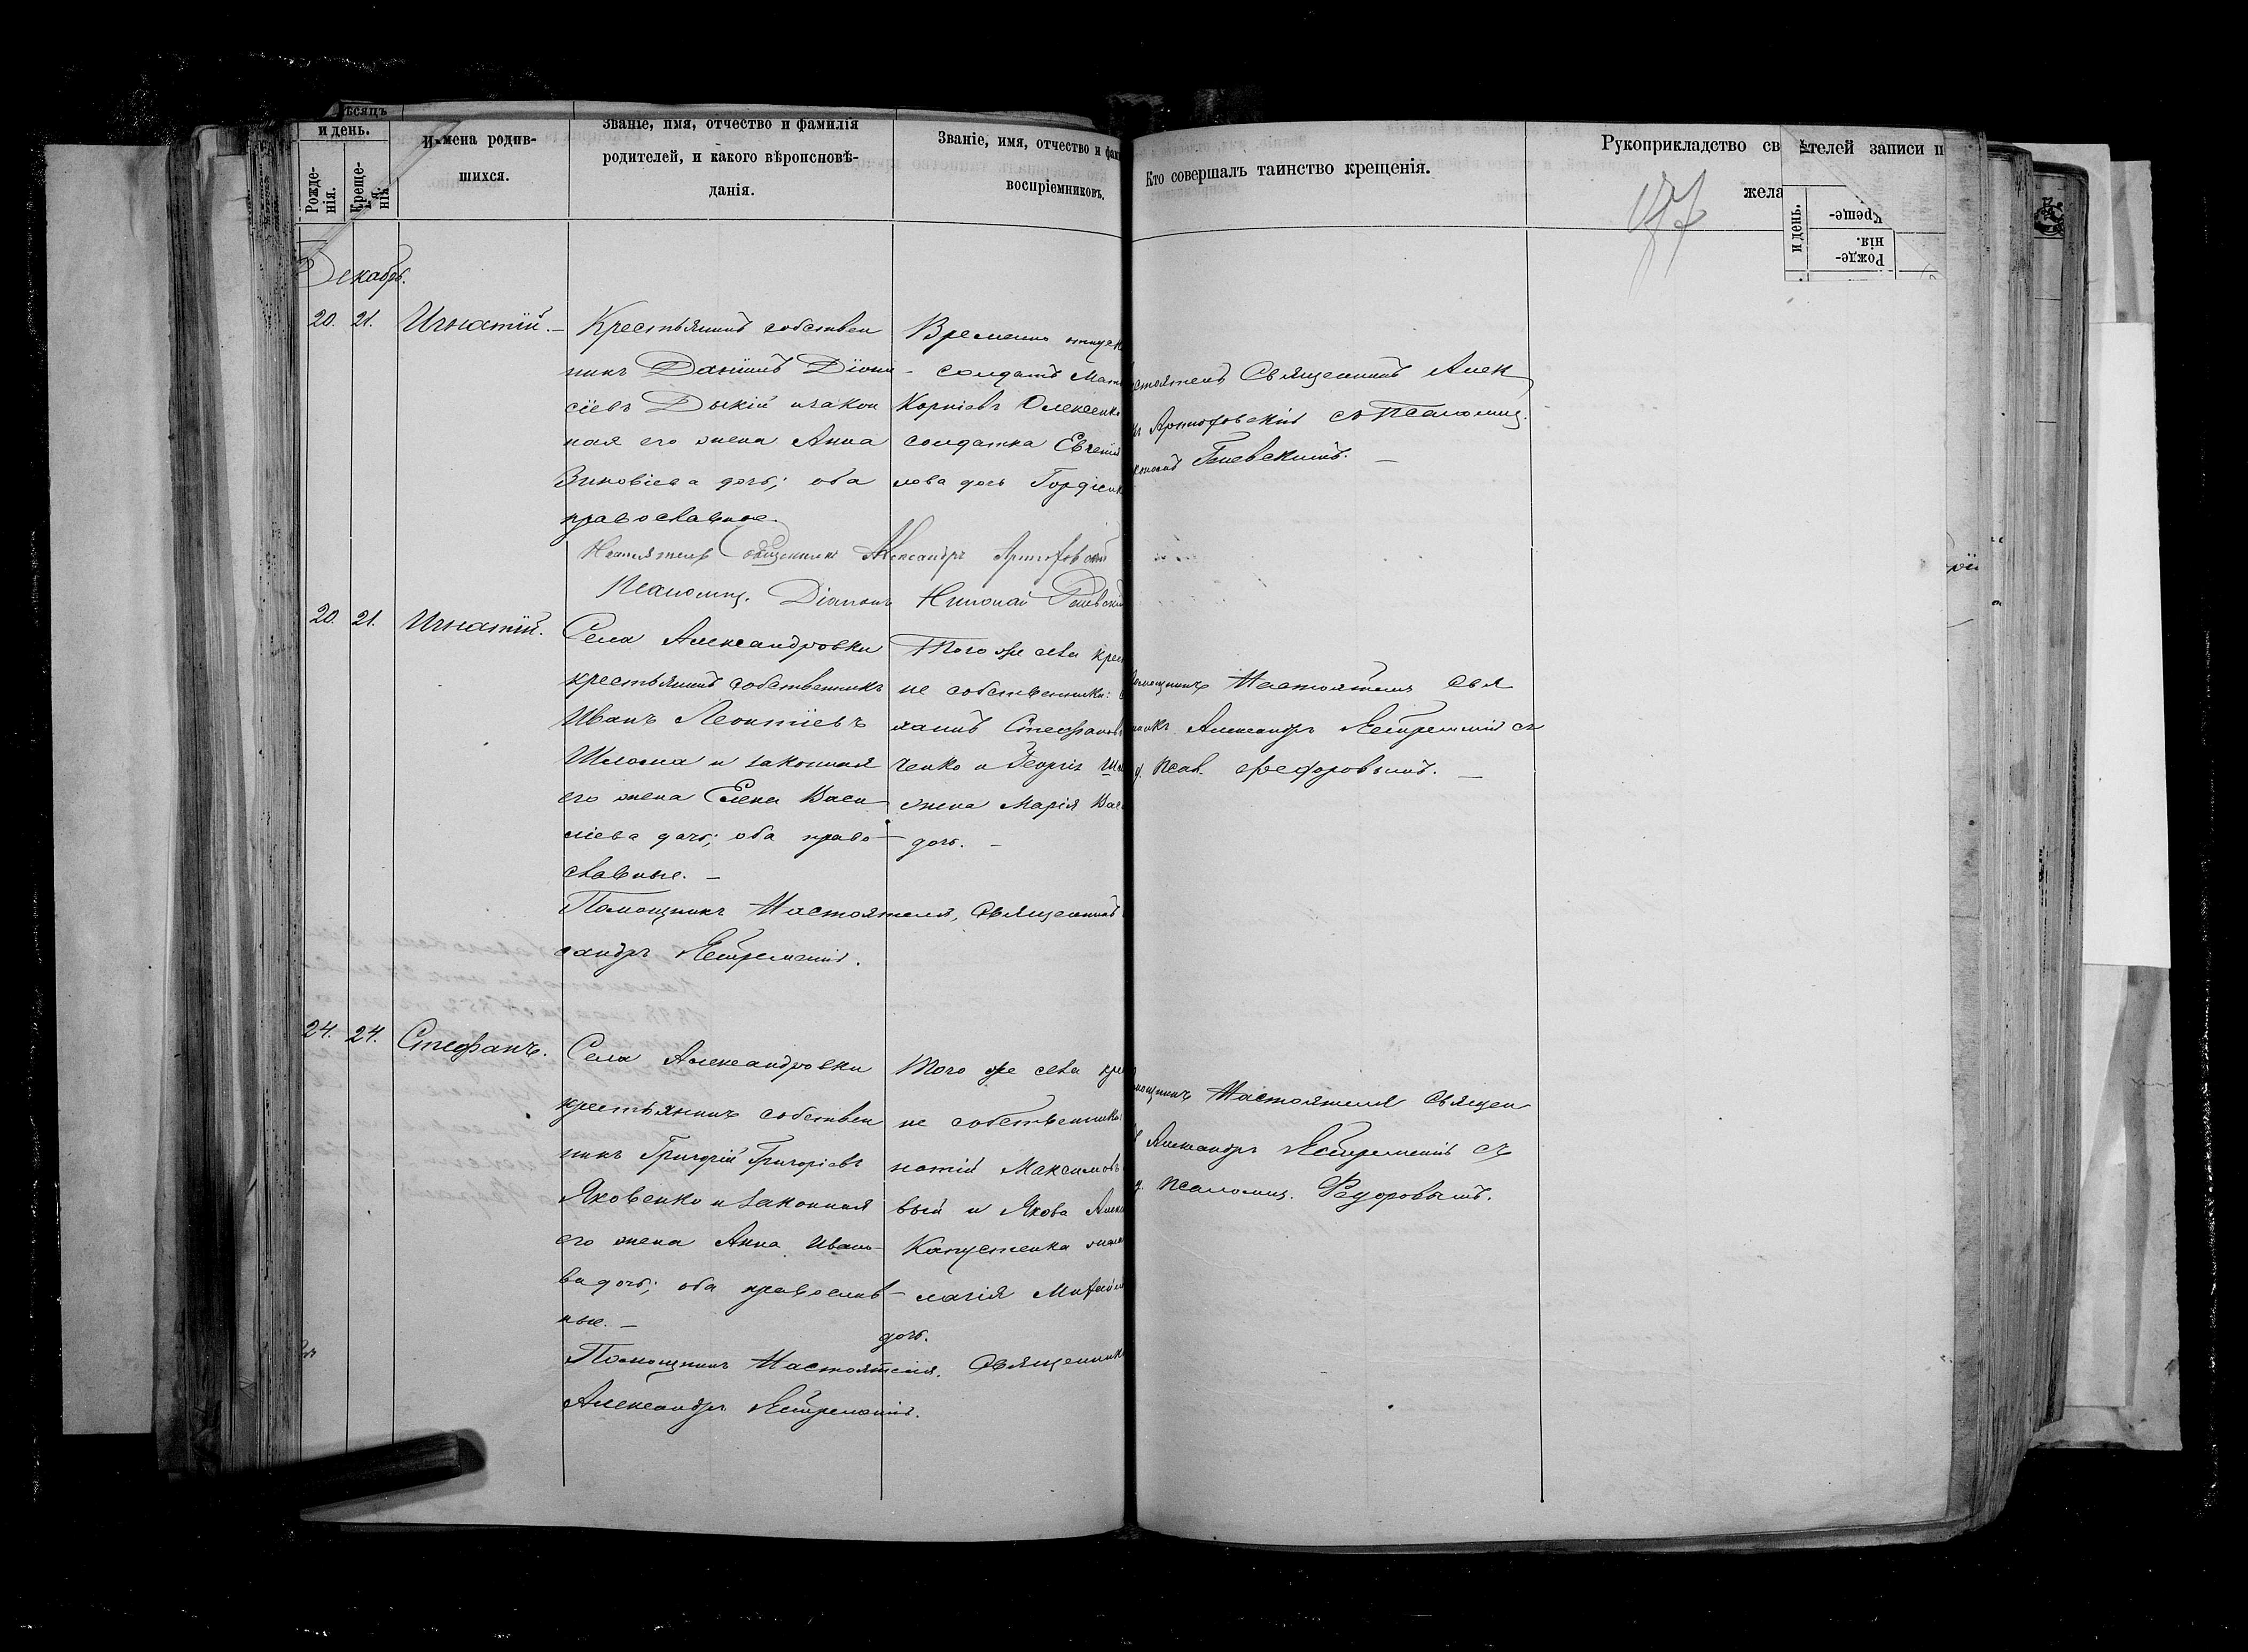 ѣсяцъ
и день.
Рожде-
нія.
Креще-
нія.
Имена родив-
шихся.
Званіе, имя, отчество и фамилія
родителей, и какого вѣроисповѣ-
данія.
Званіе, имя, отчество и фам
воспріемниковъ.
Кто совершалъ таинство крещенія.
Рукоприкладство св
ѣтелей записи п
жела
и день.
Креще-
нія.
Рожде-
Декабрь.
20. 21. Игнатій. –
Крестьянинъ собствен
никъ Даніилъ Діони
сіевъ Дикій и закон
ная его жена Анна
Зиновіева дочь; оба
православные.
Временно отпуск
– солдатъ Матв
Корніевъ Олексенко
солдатка Евгенія
лова дочь Гордіенк
стоятель Священникъ Алек
Артюховскій съ псаломщ.
Гиевскимъ. –
Настоятель Священникъ Александръ Артюховскій
Псаломщ. Діаконъ Николай
20. 21. Игнатій.
Села Александровки
крестьянинъ собственникъ
Иванъ Леонтіевъ
и законная
его жена Елена Васи
ліева дочь; оба право-
славные. –
Того же села крес
не собственники:
Стефановъ
ченко и Георгія
жена Марія Вас
дочь. –
Помощникъ Настоятеля, Священникъ
сандръ
мощникъ Настоятеля Свя
никъ Александръ съ
псал. Федоровымъ. –
24. 24. Стефанъ.
Села Александровки
крестьянинъ собствен
никъ Григорій Григоріевъ
Яковенко и законная
его жена Анна Ивано-
ва дочь; оба православ-
ные. –
Того же села кре
не собственники:
натій Максимовъ
вый и Якова Алек
Капустенка жена
лагія Михайл
дочь.
Помощникъ Настоятеля, Священникъ
Александръ
мощникъ Настоятеля Священ
Александръ съ
псаломщ. Федоровымъ.